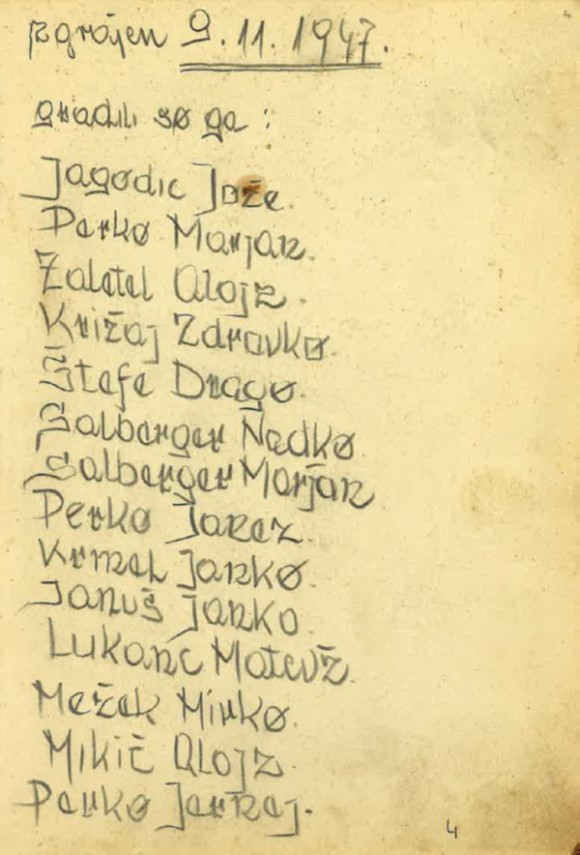 zgrajen 9.11.1947.
gradili so ga:
Jagodic Jože.
Perko Marjan.
Zaletel Alojz.
Križaj Zdravko.
Štefe Drago.
Salberger Nedko
Salberger Marjan
Perko Janez
Krmel Janko.
Januš Janko.
Lukanc Matevž.
Mežek Mirko.
Mikič Alojz.
Perko Jernej.
4